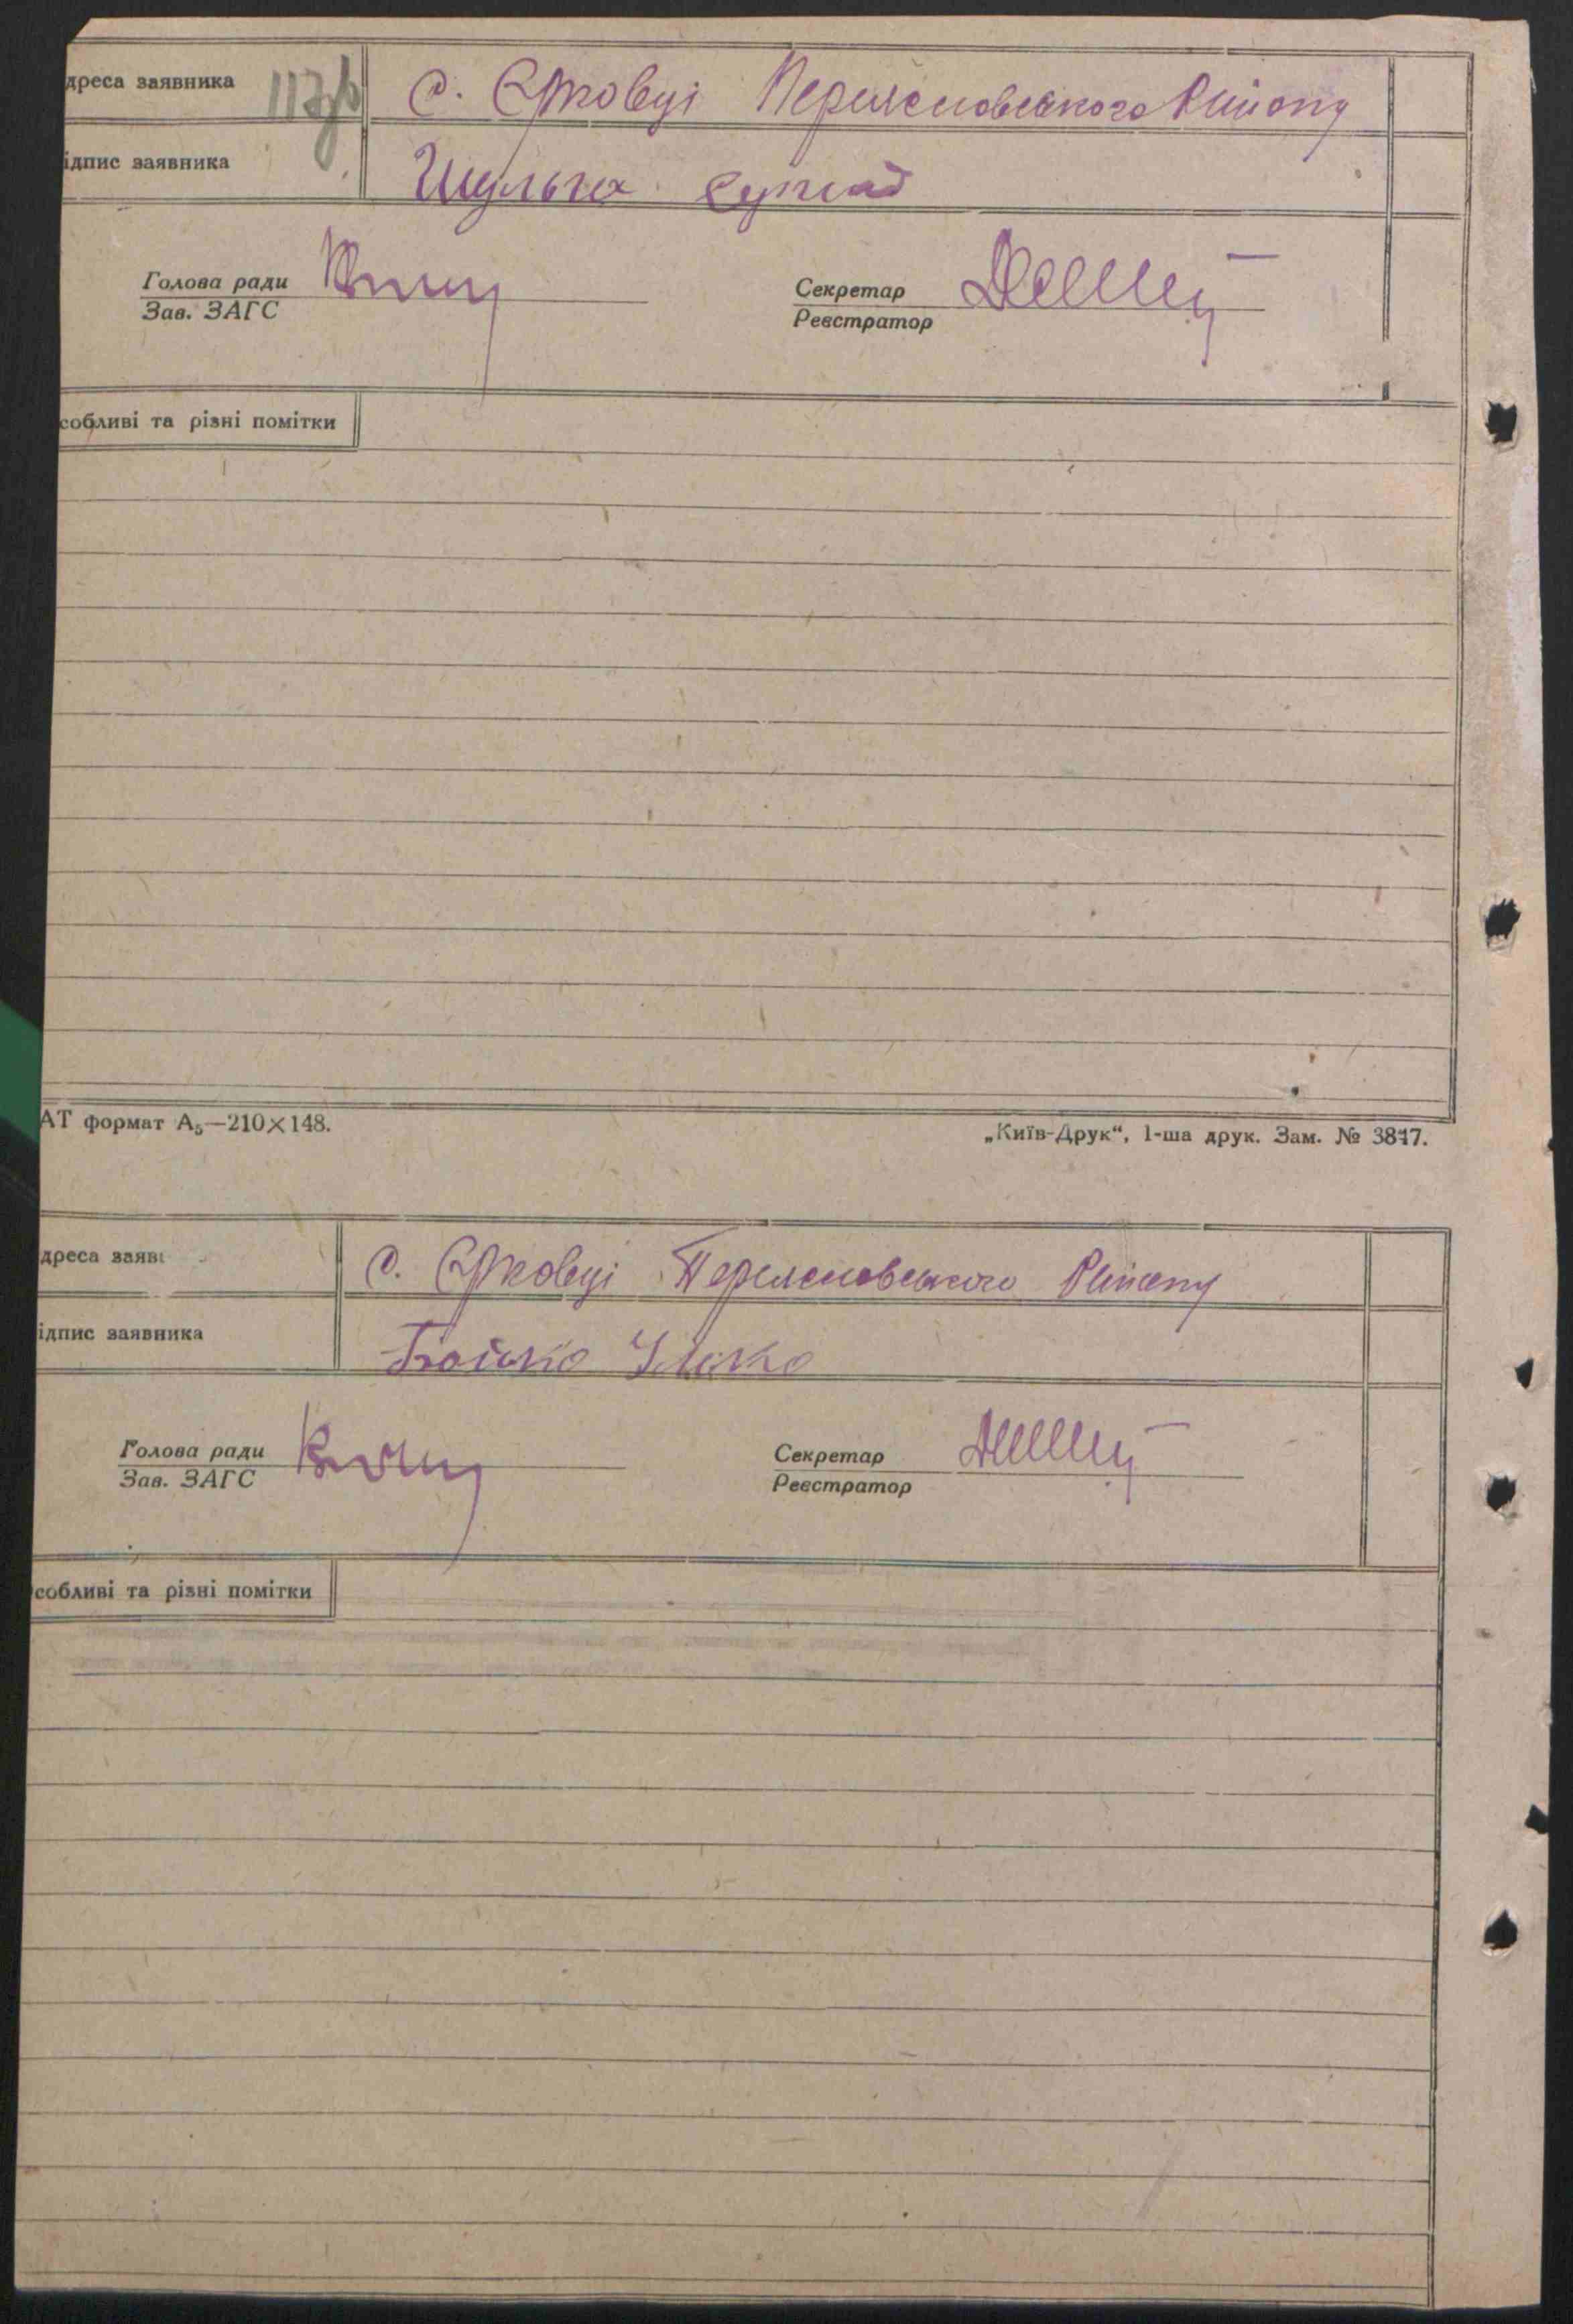 дреса заявника 117зв с. Єрковці Переяславського Району
ідпис заявника Шульга
Голова ради
Зав. ЗАГС
Секретар
Реєстратор
собливі та різні помітки
АТ формат А₅—210×148.
„Київ-Друк“, 1-ша друк. Зам. № 3817.
дреса заяв с. Єрковці Переяславського Району
ідпис заявника Бойко
Голова ради
Зав. ЗАГС
Секретар
Реєстратор
собливі та різні помітки